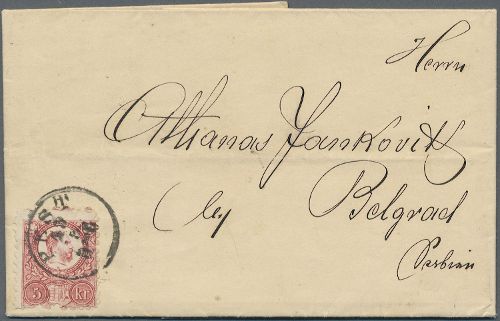 Herrn
Athanas Jankovits
Belgrad
Serbien
PEST
5 Kr